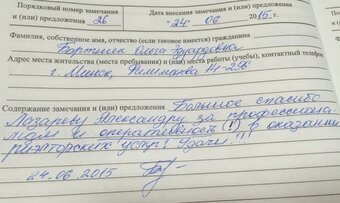 Порядковый номер замечания
и (или) предложения 26
Дата внесения замечания и (или) предложения
"24" 06 2015 г.
Фамилия, собственное имя, отчество (если таковое имеется) гражданина
Бортник Ольга Эдуардовна
Адрес места жительства (места пребывания) и (или) места работы (учебы), контактный телефон
г. Минск,
Содержание замечания и (или) предложения Большое спасибо
Лазареву Александру за профессиона
лизм и оперативность (!) в оказании
риэлторских услуг! Удачи!!!
24.06.2015